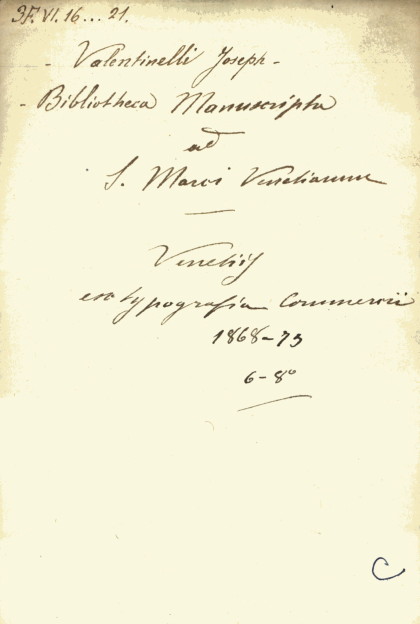 3F. VI. 16... 21.
- Valentinelli Joseph -
- Bibliotheca Manuscripta
ad
S. Marci Venetiarum
Venetiis
ex typografia Commercii
1868-73
6-8°
C